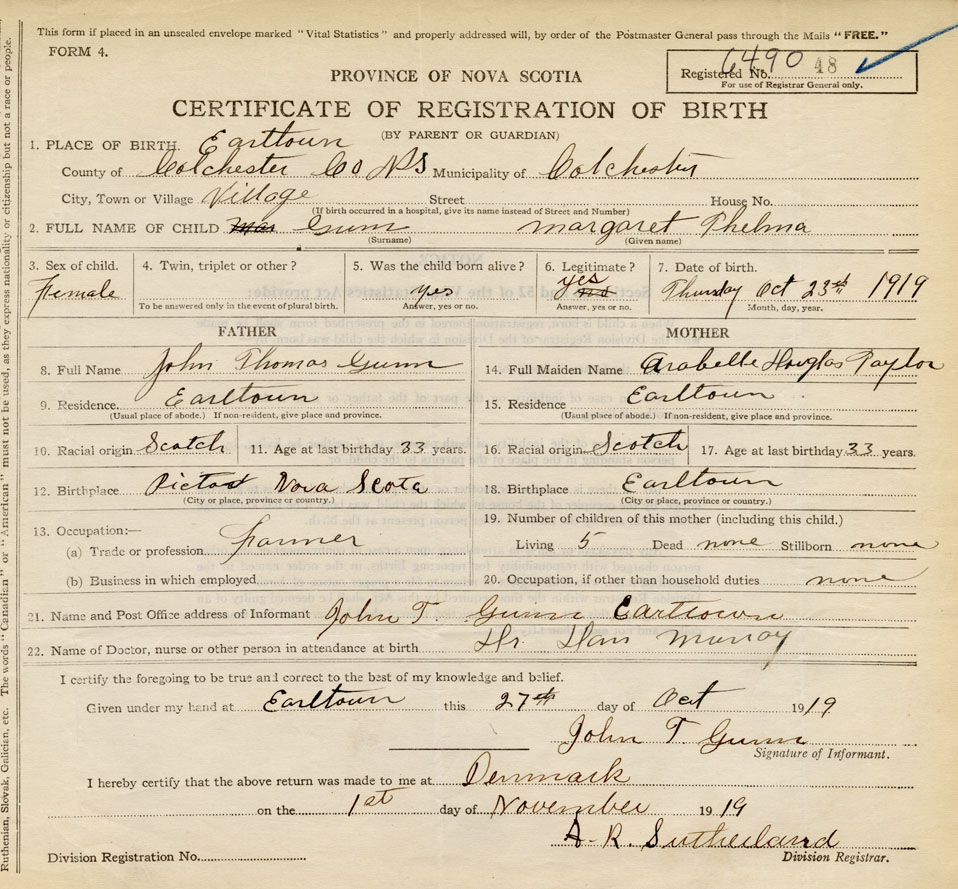 This form if placed in an unsealed envelope marked "Vital Statistics" and properly addressed will, by order of the Postmaster General pass through the Mails "FREE."
FORM 4.
Registered No. 6490 48
For use of Registrar General only.
PROVINCE OF NOVA SCOTIA
CERTIFICATE OF REGISTRATION OF BIRTH
(BY PARENT OR GUARDIAN)
1. PLACE OF BIRTH. Earltown
County of Colchester Co NS Municipality of Colchester
City, Town or Village Village Street House No.
(If birth occurred in a hospital, give its name instead of Street and Number)
2. FULL NAME OF CHILD Mar Gunn Margaret Thelma
(Surname) (Given name)
3. Sex of child. 4. Twin, triplet or other? 5. Was the child born alive? 6. Legitimate? 7. Date of birth.
Female yes yes no Thursday Oct 23rd 1919
To be answered only in the event of plural birth. Answer, yes or no. Answer, yes or no. Month, day, year.
FATHER
8. Full Name John Thomas Gunn
9. Residence Earltown
(Usual place of abode.) If non-resident, give place and province.
10. Racial origin Scotch 11. Age at last birthday 33 years.
12. Birthplace Pictou Nova Scota
(City or place, province or country.)
13. Occupation:—
(a) Trade or profession Farmer
(b) Business in which employed
MOTHER
14. Full Maiden Name Arabelle Douglas Taylor
15. Residence Earltown
(Usual place of abode.) If non-resident, give place and province.
16. Racial origin Scotch 17. Age at last birthday 33 years.
18. Birthplace Earltown
(City or place, province or country.)
19. Number of children of this mother (including this child.)
Living 5 Dead none Stillborn none
20. Occupation, if other than household duties none
21. Name and Post Office address of Informant John T. Gunn Earltown
22. Name of Doctor, nurse or other person in attendance at birth Murray
I certify the foregoing to be true and correct to the best of my knowledge and belief.
Given under my hand at Earltown this 27th day of Oct 1919
John T Gunn
Signature of Informant.
I hereby certify that the above return was made to me at Denmark
on the 1st day of November 1919
A. R. Sutherland
Division Registration No. Division Registrar.
Ruthenian, Slovak, Galician, etc. The words "Canadian" or "American" must not be used, as they express nationality or citizenship but not a race or people.